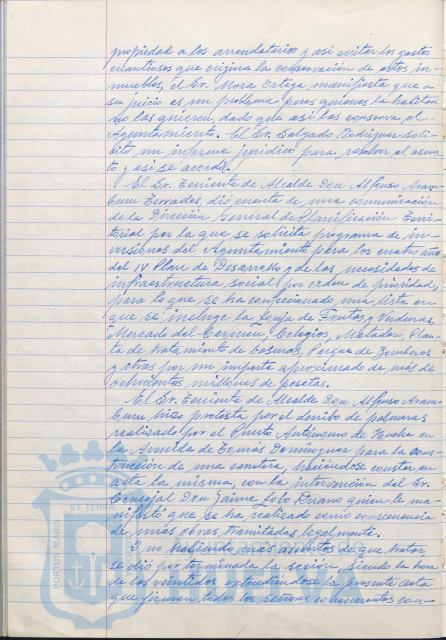 propiedad a los arrendatarios y así evitar los gastos
cuantiosos que origina la conservación de estos in-
muebles, el Sr. Mora Ortega manifiesta que a
su juicio es un problema pues quienes la habitan
no las quieren, dado que así las conserva el
Ayuntamiento. El Sr. Salgado Rodríguez soli-
citó un informe jurídico para resolver el asun-
to y así se acordó.
El Sr. Teniente de Alcalde Don Alfonso Aram-
buru Terrades, dió cuenta de una comunicación
de la Dirección General de Planificación Terri-
torial por la que se solicita programa de in-
versiones del Ayuntamiento para los cuatro años
del IV Plan de Desarrollo y de las necesidades de
infraestructura social por orden de prioridad,
para lo que se ha confeccionado una lista en
que se incluye la Lonja de Frutas y Verduras,
Mercado del Carmen, Colegios, Matadero, Plan-
ta de tratamiento de basuras, Parque de Bomberos
y otras por un importe aproximado de más de
ochocientos millones de pesetas.
El Sr. Teniente de Alcalde Don Alfonso Aram-
buru hizo protesta por el derribo de palmeras
realizado por el Puerto Autónomo de Huelva en
la Avenida de Tomás Domínguez para la cons-
trucción de una carretera, haciéndose constar en
acta la misma, con la intervención del Sr.
Concejal Don Jaime Lobo Ruano quien le ma-
nifestó que se ha realizado como consecuencia
de unas obras, tramitadas legalmente.
Y no habiendo más asuntos de que tratar,
se dió por terminada la sesión, siendo la hora
de las veintidos extendiéndose la presente acta
que firman todos los señores concurrentes con-
PORTUS MARIS
ET TERRAE